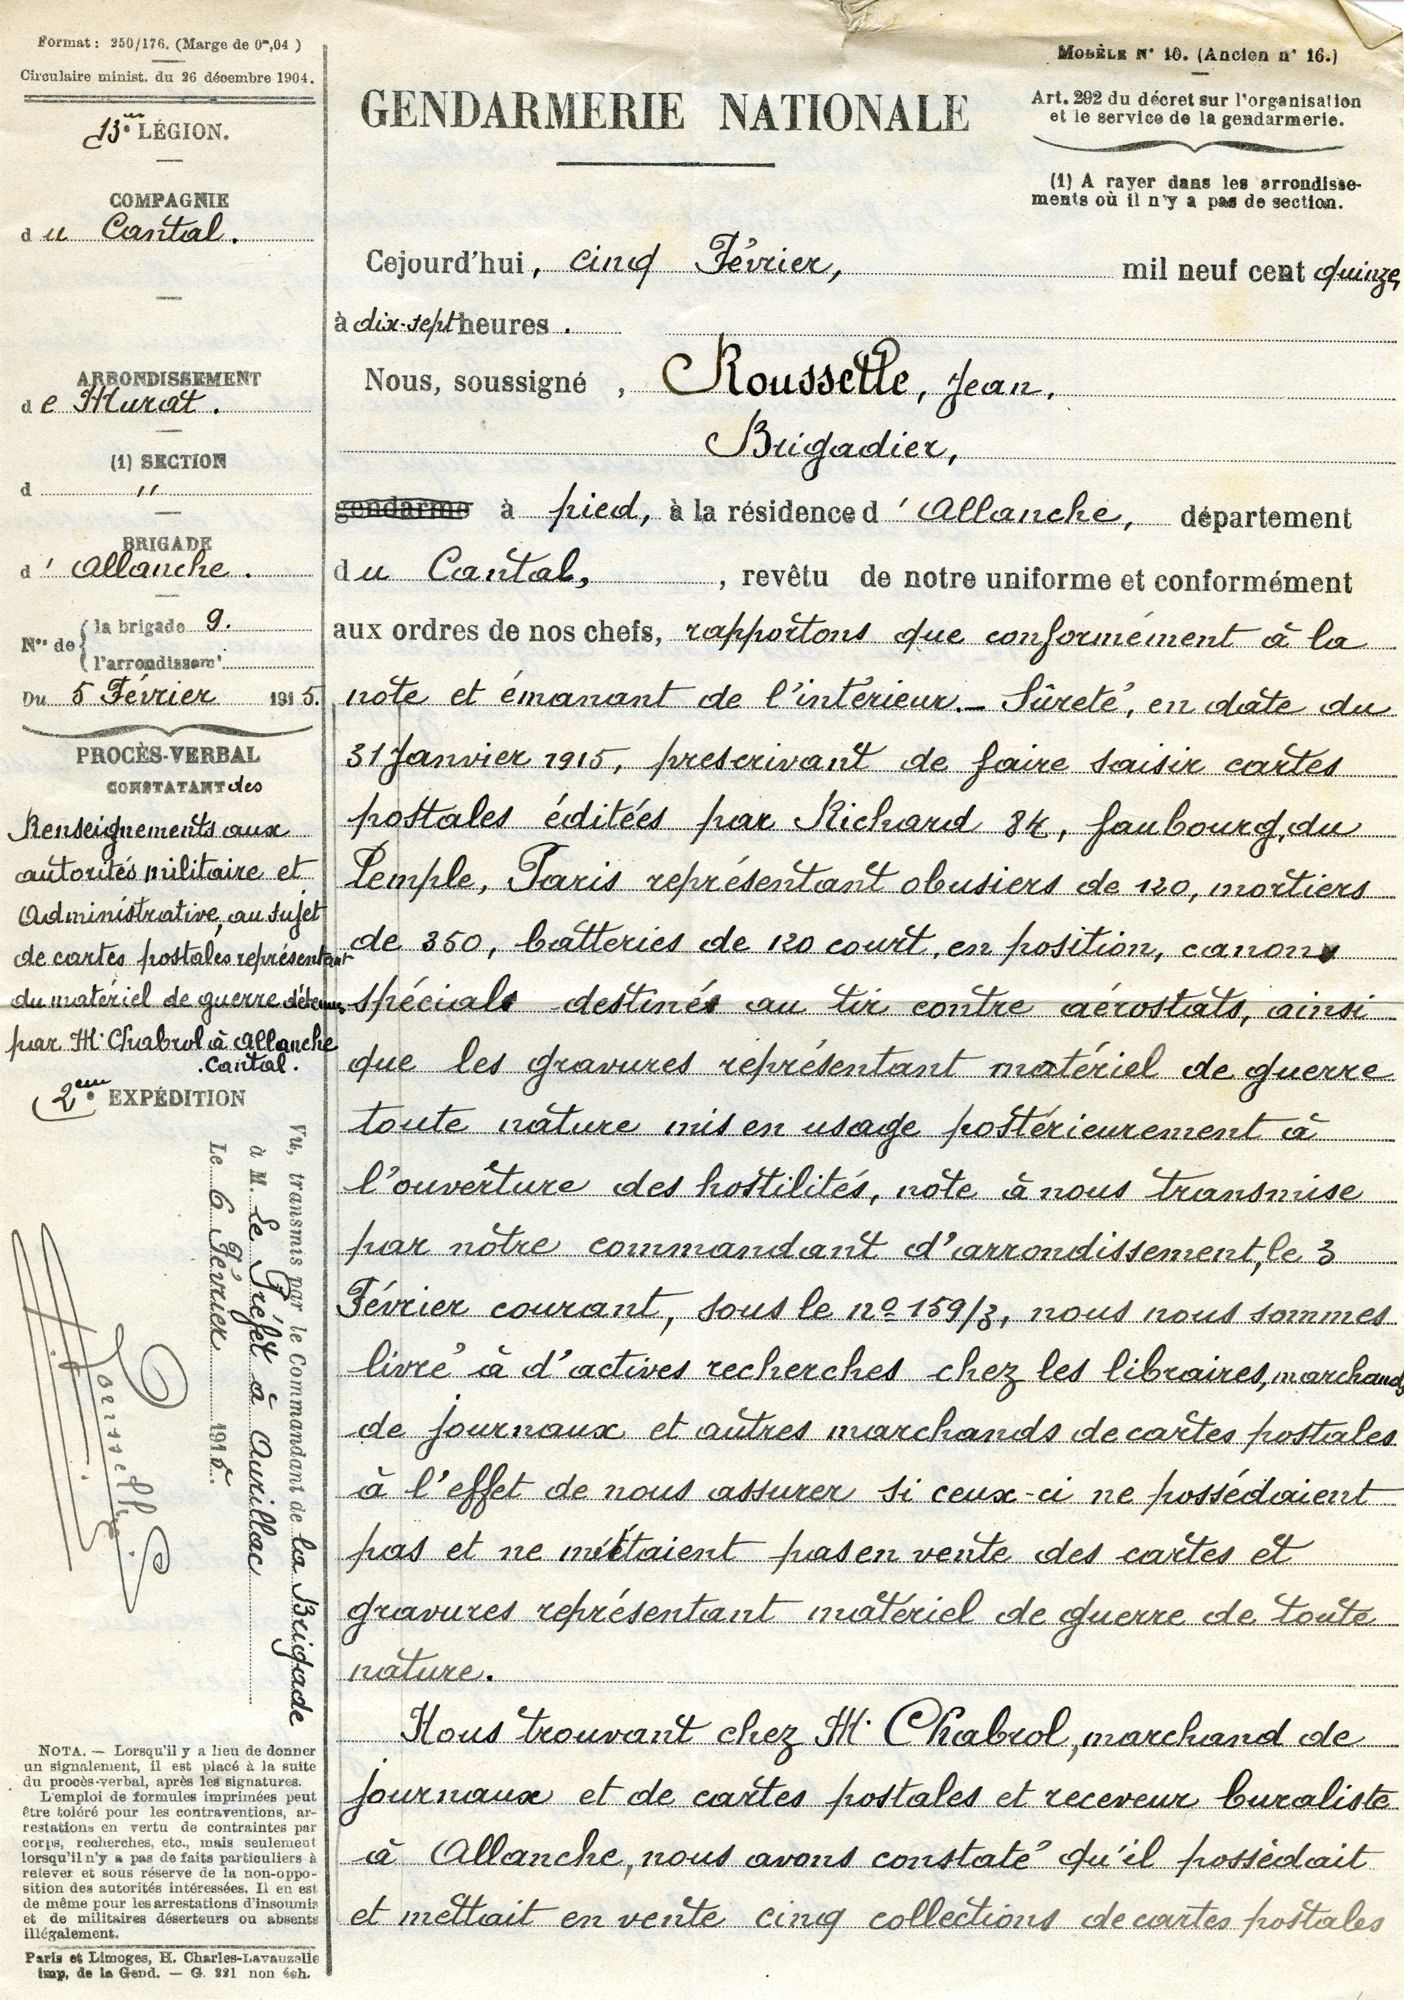 Format : 250/176. (Marge de 0m,04)
Circulaire minist. du 26 décembre 1904.
13me LÉGION.
COMPAGNIE
du Cantal.
ARRONDISSEMENT
de Murat.
(1) SECTION
d "
BRIGADE
d' Allanche.
Nos de { la brigade 9.
l'arrondissemt
Du 5 Février 1915.
PROCÈS-VERBAL
CONSTATANT des
Renseignements aux
autorités militaire et
Administrative, au sujet
de cartes postales représentant
du matériel de guerre détenues
par M. Chabrol à Allanche
Cantal.
2eme EXPÉDITION
Vu, transmis par le Commandant de la Brigade
à M. Le Préfet à Aurillac
Le 6 Février 1915.
Rousselle
NOTA. — Lorsqu'il y a lieu de donner
un signalement, il est placé à la suite
du procès-verbal, après les signatures.
L'emploi de formules imprimées peut
être toléré pour les contraventions, ar-
restations en vertu de contraintes par
corps, recherches, etc., mais seulement
lorsqu'il n'y a pas de faits particuliers à
relever et sous réserve de la non-oppo-
sition des autorités intéressées. Il en est
de même pour les arrestations d'insoumis
et de militaires déserteurs ou absents
illégalement.
Paris et Limoges, H. Charles-Lavauzelle
imp. de la Gend. — G. 221 non éch.
GENDARMERIE NATIONALE
MODÈLE N° 10. (Ancien n° 16.)
Art. 292 du décret sur l'organisation
et le service de la gendarmerie.
(1) A rayer dans les arrondisse-
ments où il n'y a pas de section.
Cejourd'hui, cinq Février, mil neuf cent quinze,
à dix-sept heures.
Nous, soussigné, Rousselle, Jean,
Brigadier,
gendarme à pied, à la résidence d'Allanche, département
du Cantal, , revêtu de notre uniforme et conformément
aux ordres de nos chefs, rapportons que conformément à la
note et émanant de l'intérieur.- Sûreté, en date du
31 Janvier 1915, prescrivant de faire saisir cartes
postales éditées par Richard 84, faubourg, du
Temple, Paris représentant obusiers de 120, mortiers
de 350, batteries de 120 court, en position, canons
spécials destinés au tir contre aérostats, ainsi
que les gravures représentant matériel de guerre
toute nature mis en usage postérieurement à
l'ouverture des hostilités, note à nous transmise
par notre commandant d'arrondissement, le 3
Février courant, sous le no 159/3, nous nous sommes
livré à d'actives recherches chez les libraires, marchands
de journaux et autres marchands de cartes postales
à l'effet de nous assurer si ceux-ci ne possédaient
pas et ne métaient pas en vente des cartes et
gravures représentant matériel de guerre de toute
nature.
Nous trouvant chez M. Chabrol, marchand de
journaux et de cartes postales et receveur buraliste
à Allanche, nous avons constaté qu'il possédait
et mettait en vente cinq collections de cartes postales